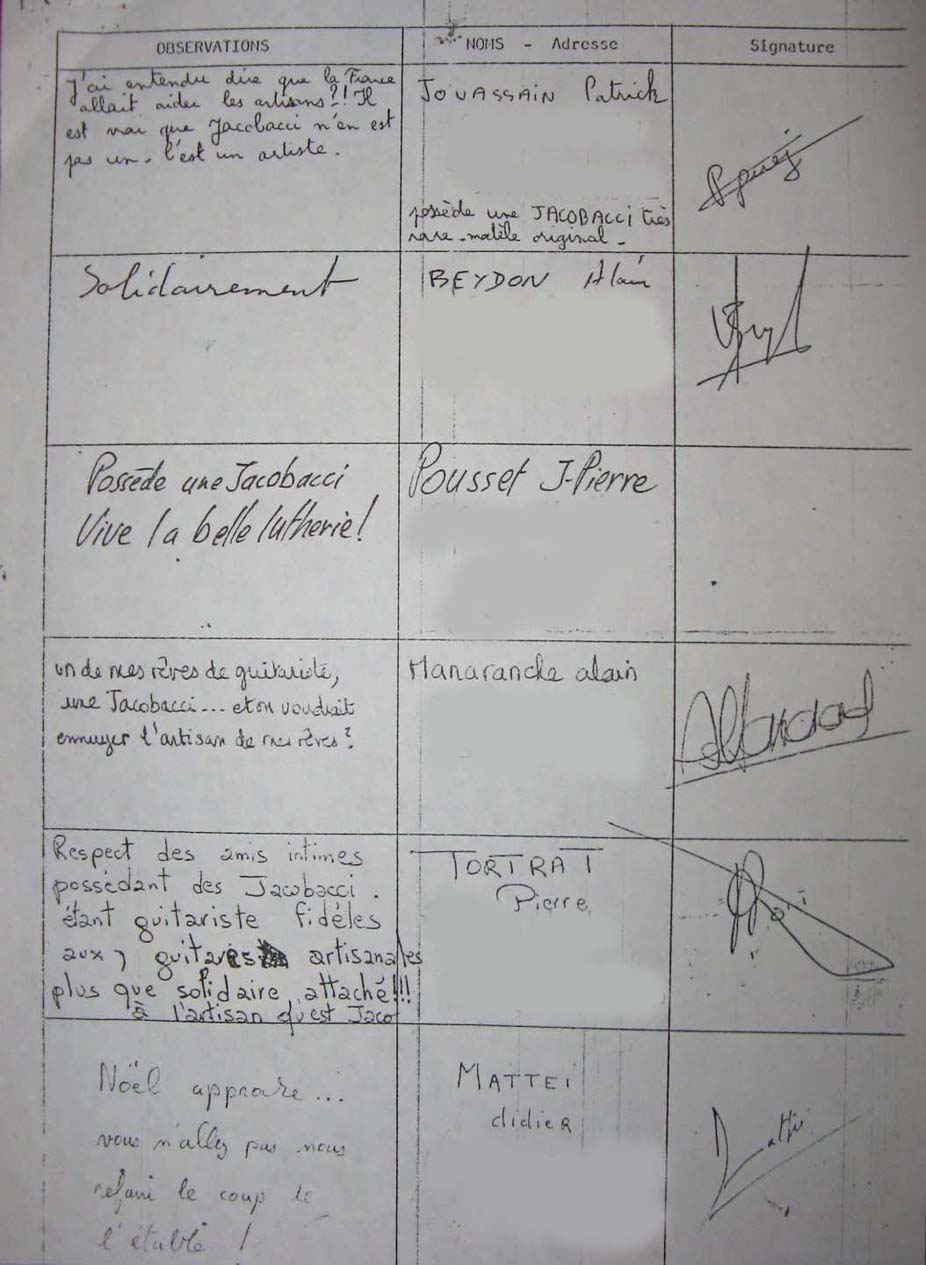 OBSERVATIONS
NOMS - Adresse
Signature
J'ai entendu dire que la France
allait aider les artisans?!! Il
est vrai que Jacobacci n'en est
pas un. C'est un artiste.
JOUASSAIN Patrick
possède une JACOBACCI très
rare. modèle original.
Solidairement
BEYDON Alain
Possède une Jacobacci
Vive la belle lutherie!
Pousset J-Pierre
un de mes rêves de guitariste,
une Jacobacci... et on voudrait
ennuyer l'artisan de mes rêves?
Manaranche alain
Respect des amis intimes
possédant des Jacobacci.
étant guitariste fidèles
aux guitares artisanales
plus que solidaire, attaché!!!
à l'artisan qu'est Jaco
TORTRAT
Pierre
Noël approche...
vous n'allez pas nous
refaire le coup de
l'étable !
MATTEI
didieR